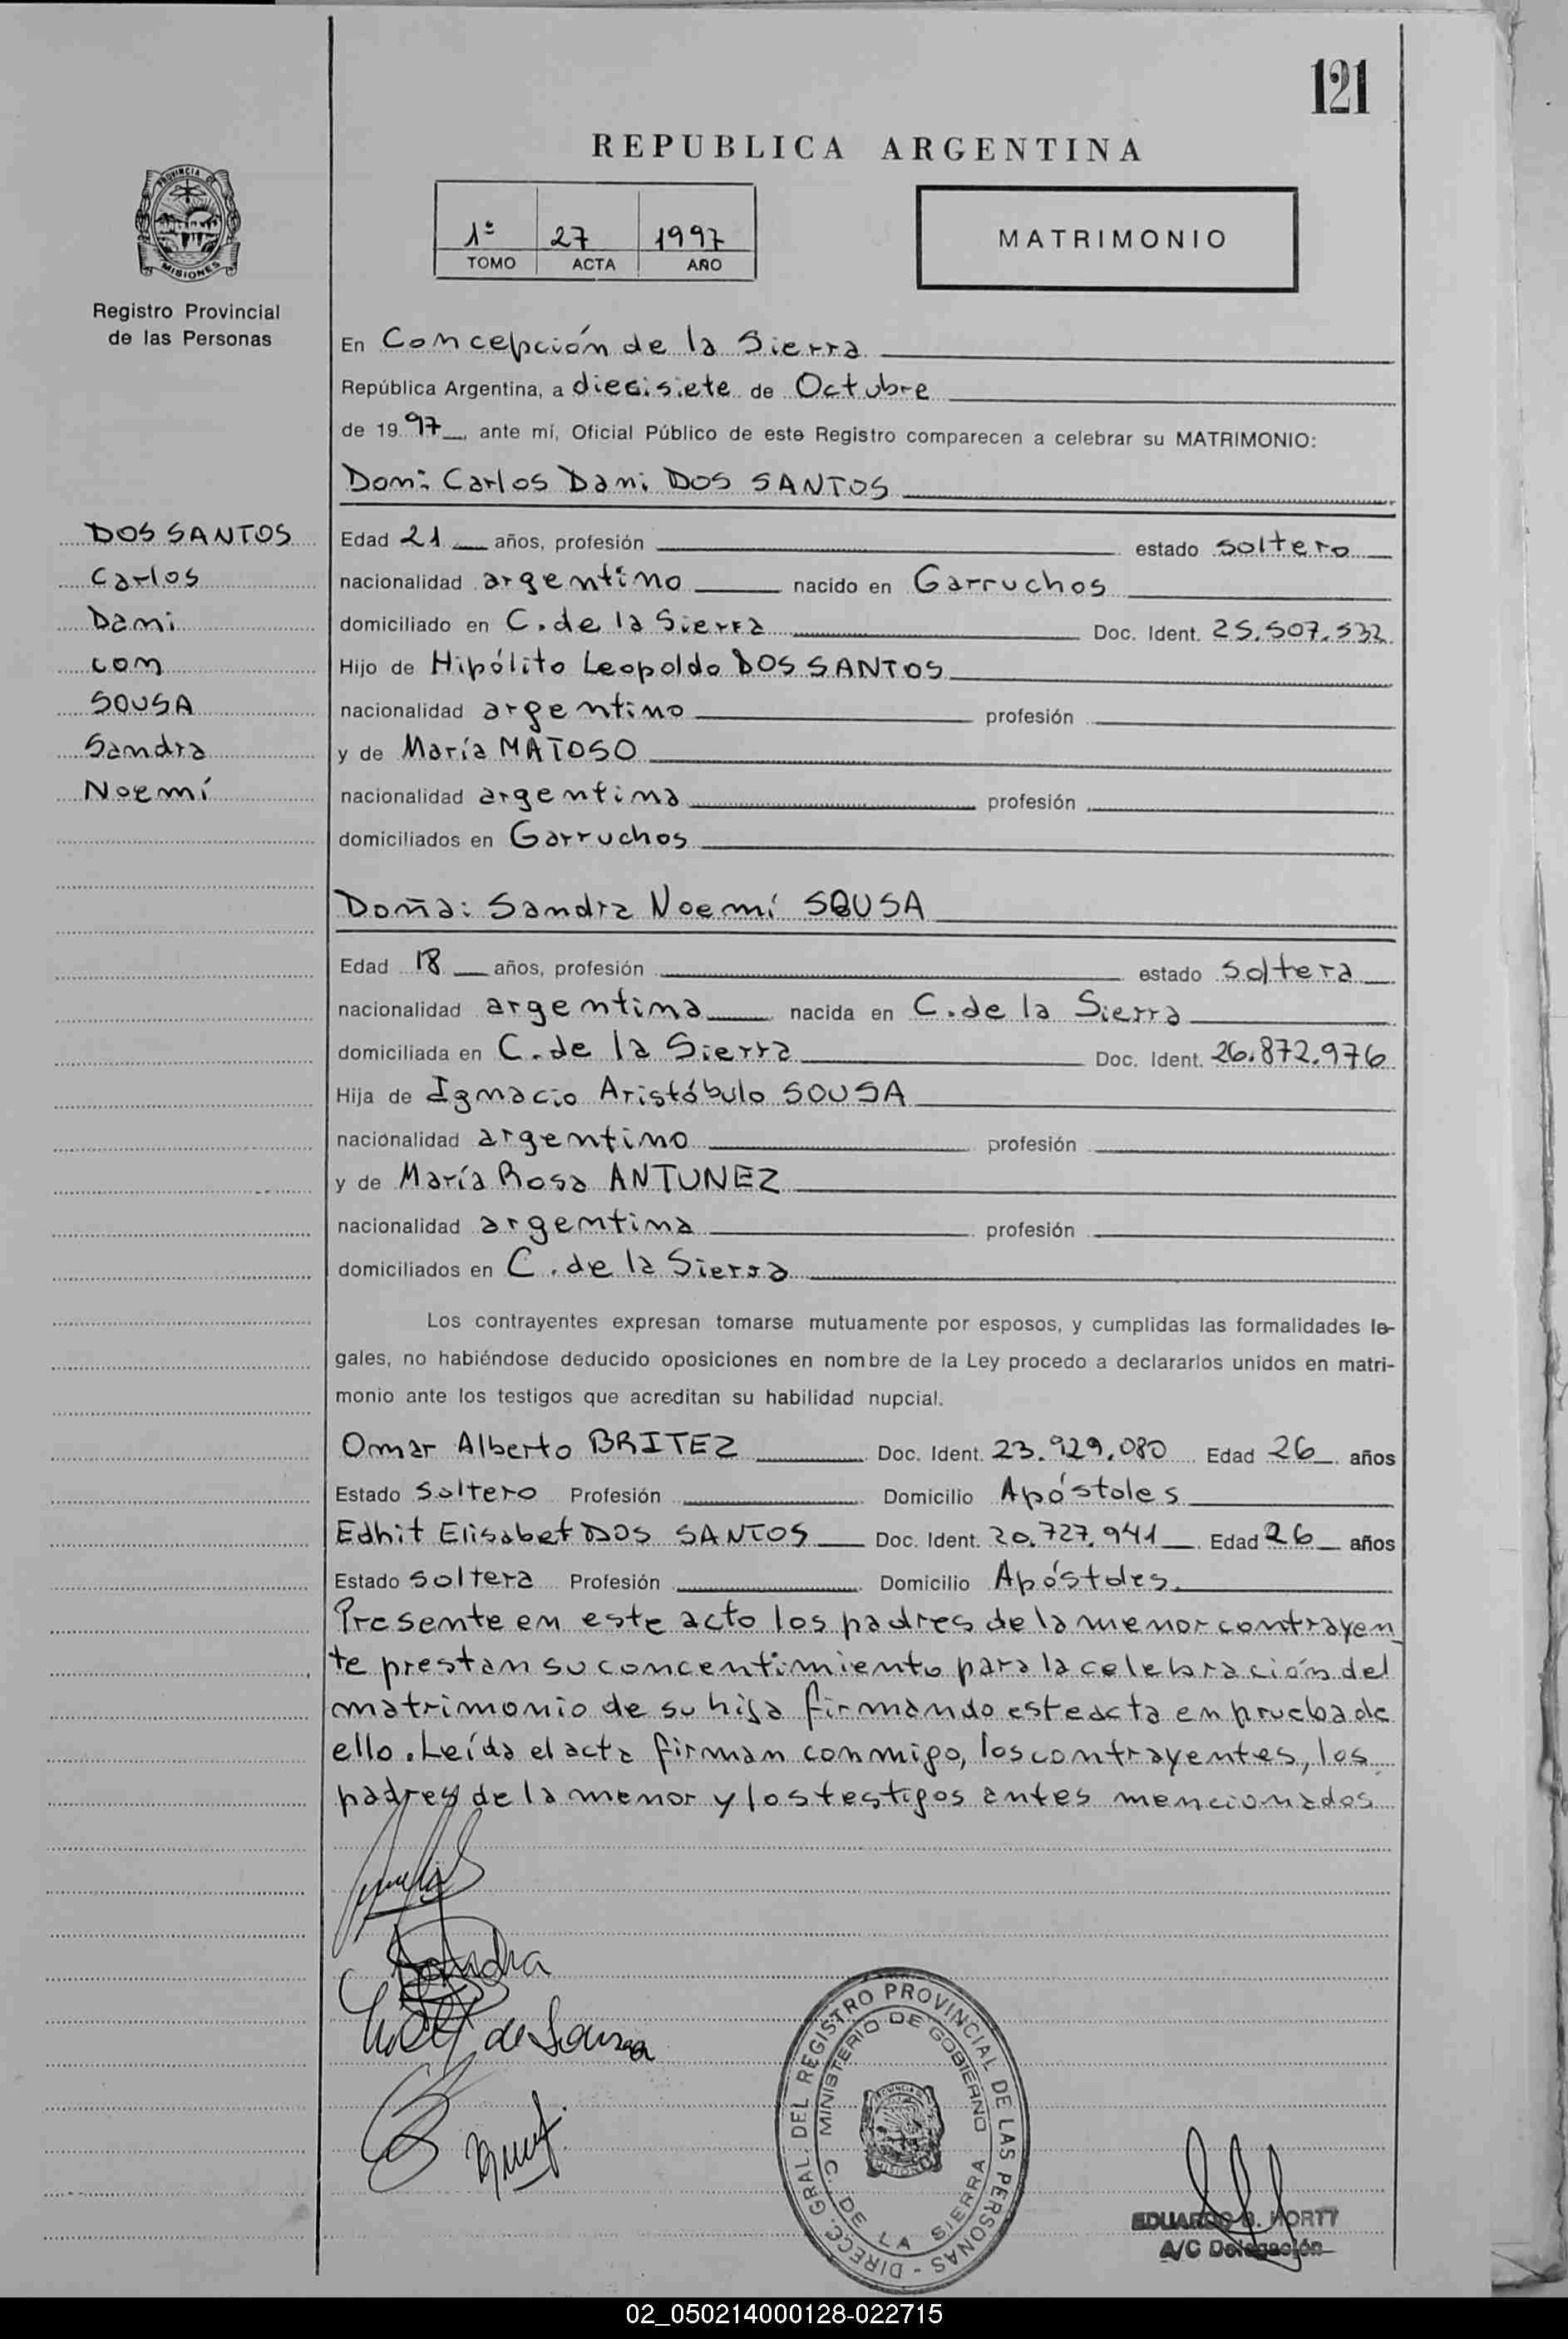 121
REPUBLICA ARGENTINA
PROVINCIA DE
MISIONES
Registro Provincial
de las Personas
1º 27 1997
TOMO ACTA AÑO
MATRIMONIO
En Concepción de la Sierra
República Argentina, a diecisiete de Octubre
de 19 97, ante mí, Oficial Público de este Registro comparecen a celebrar su MATRIMONIO:
Don: Carlos Dani DOS SANTOS
DOS SANTOS
Carlos
Dani
con
SOUSA
Sandra
Noemí
Edad 21 años, profesión estado soltero
nacionalidad argentino nacido en Garruchos
domiciliado en C. de la Sierra Doc. Ident. 25.507.532
Hijo de Hipólito Leopoldo DOS SANTOS
nacionalidad argentino profesión
y de María MATOSO
nacionalidad argentina profesión
domiciliados en Garruchos
Doña: Sandra Noemí SOUSA
Edad 18 años, profesión estado soltera
nacionalidad argentina nacida en C. de la Sierra
domiciliada en C. de la Sierra Doc. Ident. 26.872.976
Hija de Ignacio Aristóbulo SOUSA
nacionalidad argentino profesión
y de María Rosa ANTUNEZ
nacionalidad argentina profesión
domiciliados en C. de la Sierra
Los contrayentes expresan tomarse mutuamente por esposos, y cumplidas las formalidades le-
gales, no habiéndose deducido oposiciones en nombre de la Ley procedo a declararlos unidos en matri-
monio ante los testigos que acreditan su habilidad nupcial.
Omar Alberto BRITEZ Doc. Ident. 23.929.080 Edad 26 años
Estado soltero Profesión Domicilio Apóstoles
Edhit Elisabet DOS SANTOS Doc. Ident. 20.727.941 Edad 26 años
Estado soltera Profesión Domicilio Apóstoles.
Presente en este acto los padres de la menor contrayen_
te prestan su concentimiento para la celebración del
matrimonio de su hija firmando este acta en prueba de
ello. Leída el acta firman conmigo, los contrayentes, los
padres de la menor y los testigos antes mencionados
Sandra
de Souza
DIRECC. GRAL. DEL REGISTRO PROVINCIAL DE LAS PERSONAS -
MINISTERIO DE GOBIERNO
C. DE LA SIERRA
EDUARDO HORTT
A/C Delegación
02_050214000128-022715